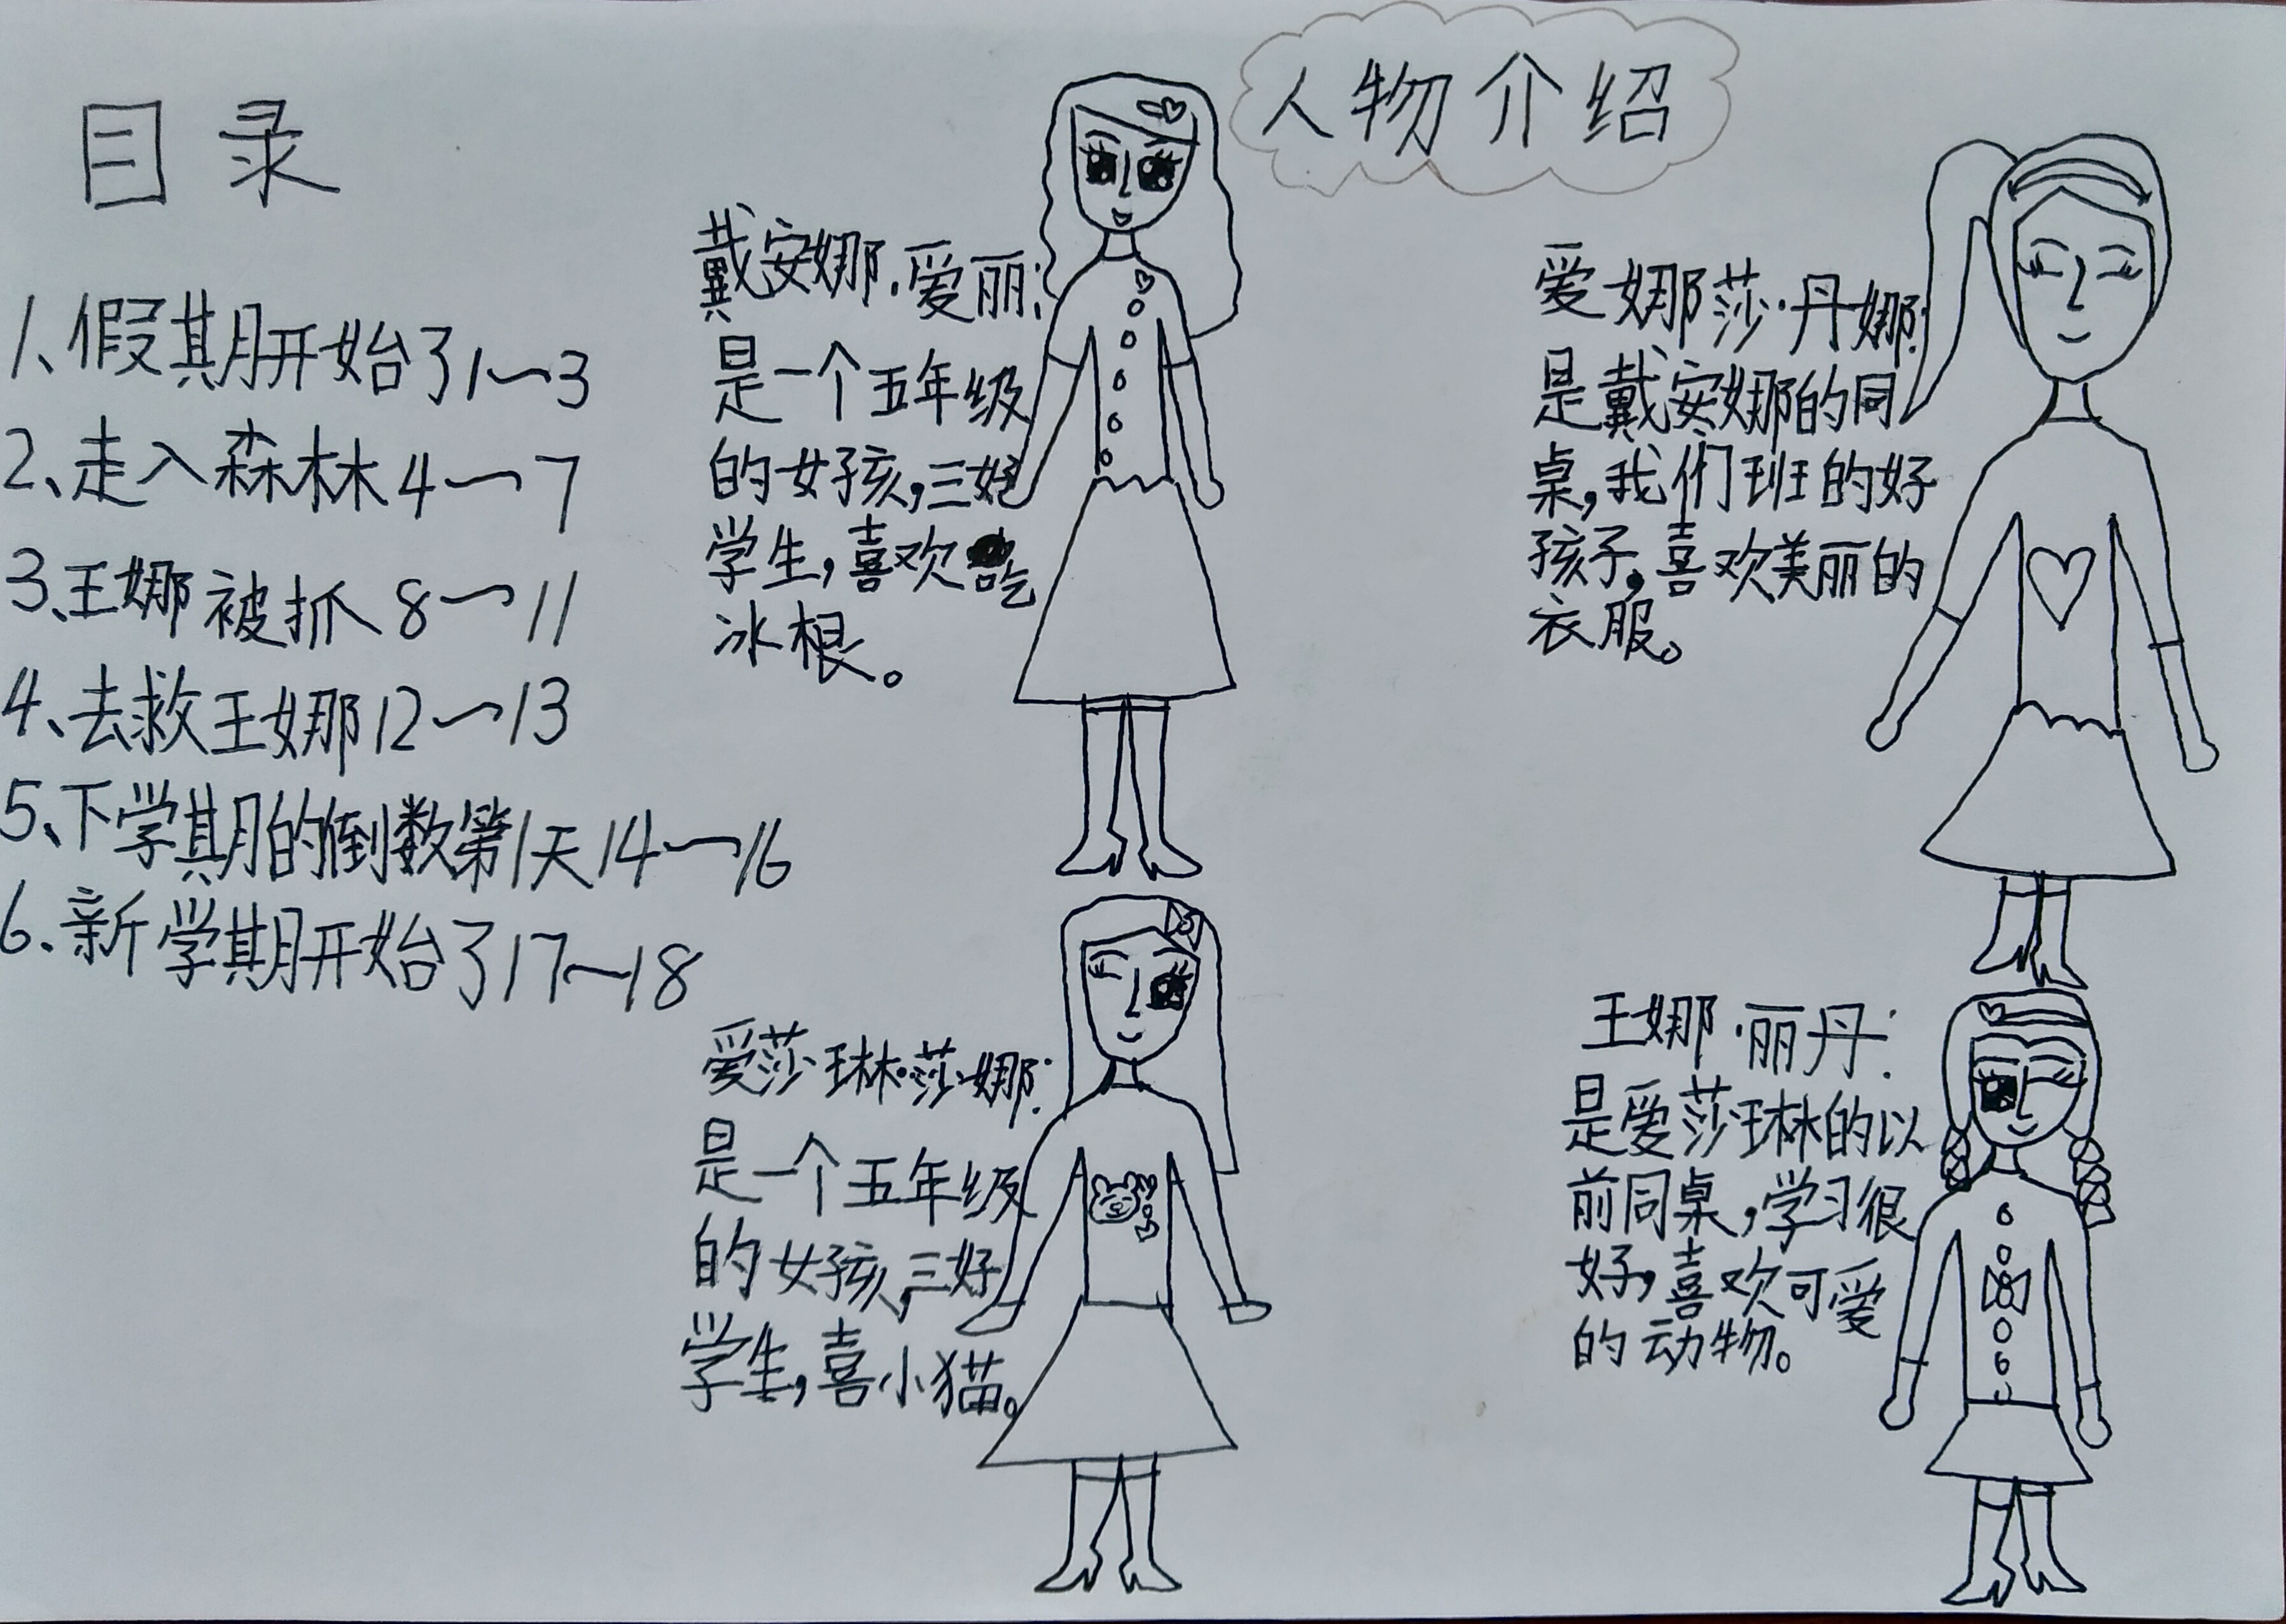 目录
1、假期开始了1~3
2、走入森林4~7
3、王娜被抓8~11
4、去救王娜12~13
5、下学期的倒数第1天14~16
6、新学期开始了17~18
人物介绍
戴安娜·爱丽:
是一个五年级
的女孩,三好
学生,喜欢吃
冰根。
爱娜莎·丹娜:
是戴安娜的同
桌,我们班的好
孩子,喜欢美丽的
衣服。
爱莎琳·莎娜:
是一个五年级
的女孩,三好
学生,喜小猫。
王娜·丽丹:
是爱莎琳的以
前同桌,学习很
好,喜欢可爱
的动物。